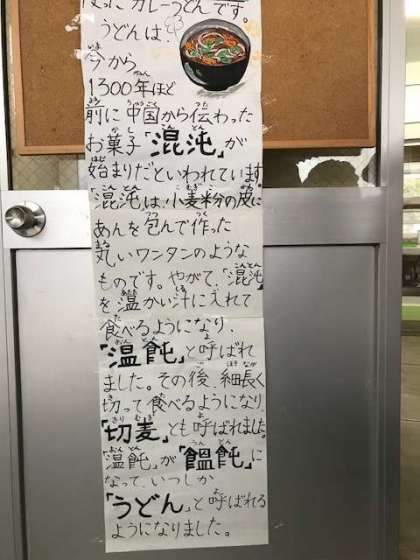 使ったカレーうどんです。
うどんは、
今から
1300年ほど
前に中国から伝わった
お菓子「混沌」が
始まりだといわれています。
「混沌」は、小麦粉の皮に
あんを包んで作った
丸いワンタンのような
ものです。やがて、「混沌」
を温かい汁に入れて
食べるようになり、
「温飩」と呼ばれ
ました。その後、細長く
切って食べるようになり、
「切麦」とも呼ばれました。
「温飩」が「饂飩」に
なって、いつしか
「うどん」と呼ばれる
ようになりました。